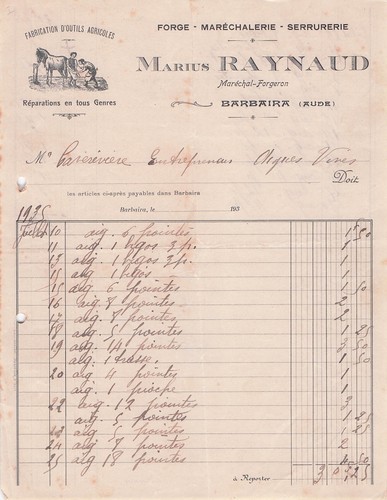 FABRICATION D'OUTILS AGRICOLES
Réparations en tous Genres
FORGE - MARÉCHALERIE - SERRURERIE
MARIUS RAYNAUD
Maréchal-Forgeron
BARBAIRA (AUDE)
Mr Entrepreneur Aigues Vives
Doit
les articles ci-après payables dans Barbaira
Barbaira, le 193
1935
Juillet 10 aig. 6 pointes 1 50
11 aig. 1 3 p. 1
13 aig. 1 3 p. 1
15 aig. 1 1
15 aig. 6 pointes 1 50
16 aig. 8 pointes 2
17 aig. 8 pointes 2
18 aig. 5 pointes 1 25
19 aig. 14 pointes 3 50
aig. 1 1 50
20 aig. 4 pointes 1
aig. 1 pioche 1
22 aig. 12 pointes 3
aig. 5 pointes 1 25
aig. 5 pointes 1 25
24 aig. 8 pointes 2
25 aig. 18 pointes 4 50
à Reporter 25